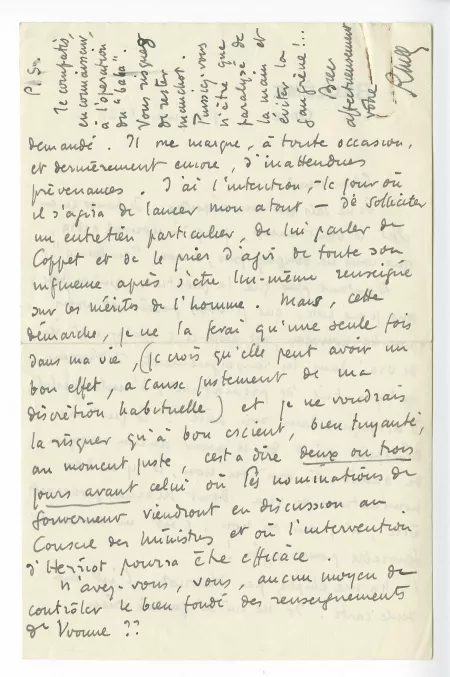 demandé. Il me marque, à toute occasion,
et dernièrement encore, d'inattendues
prévenances. J'ai l'intention, – le jour où
il s'agira de lancer mon atout – de solliciter
un entretien particulier, de lui parler de
Coppet et de le prier d'agir de toute son
influence après s'être lui-même renseigné
sur les mérites de l'homme. Mais, cette
démarche, je ne la ferai qu'une seule fois
dans ma vie, (je crois qu'elle peut avoir un
bon effet, à cause justement de ma
discrétion habituelle) et je ne voudrais
la risquer qu'à bon escient, bien tuyauté,
au moment juste, c'est à dire deux ou trois
jours avant celui où les nominations de
Gouverneur viendront en discussion au
Conseil des Ministres et où l'intervention
d'Herriot pourra être efficace.
N'avez-vous, vous, aucun moyen de
contrôler le bien fondé des renseignements
de Yvonne ??
P.S.
Je compatis,
en connaisseur,
à l'opération
du "baba".
Vous risquez
de rester
manchot.
Puissiez-vous
n'être que
paralysé de
la main et
éviter la
gangrène !..
Bien
affectueusement
vôtre